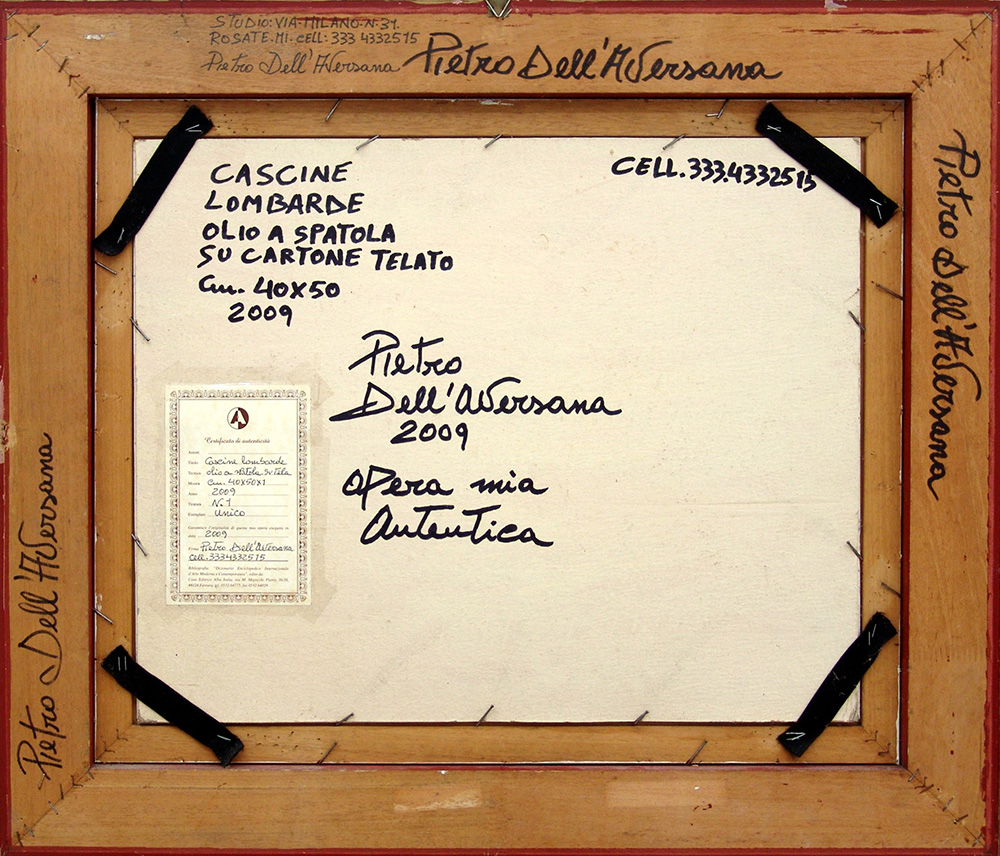 STUDIO: VIA MILANO N. 31
ROSATE. MI. CELL: 333 4332515
Pietro Dell'Aversana
Pietro Dell'Aversana
CASCINE
LOMBARDE
OLIO A SPATOLA
SU CARTONE TELATO
Cm. 40X50
2009
CELL. 333.4332515
Pietro
Dell'Aversana
2009
opera mia
Autentica
A
Certificato di autenticità
Autore
Titolo Cascine lombarde
Tecnica olio a spatola su tela
Misura Cm. 40X50X1
Anno 2009
Tiratura N. 1
Esemplare Unico
Garantisco l'originalità di questa mia opera eseguita in
data 2009
Firma Pietro Dell'Aversana
Cell. 3334332515
Bibliografia: "Dizionario Enciclopedico Internazionale
d'Arte Moderna e Contemporanea", edito da
Casa Editrice Alba
Pietro Dell'Aversana
Pietro Dell'Aversana